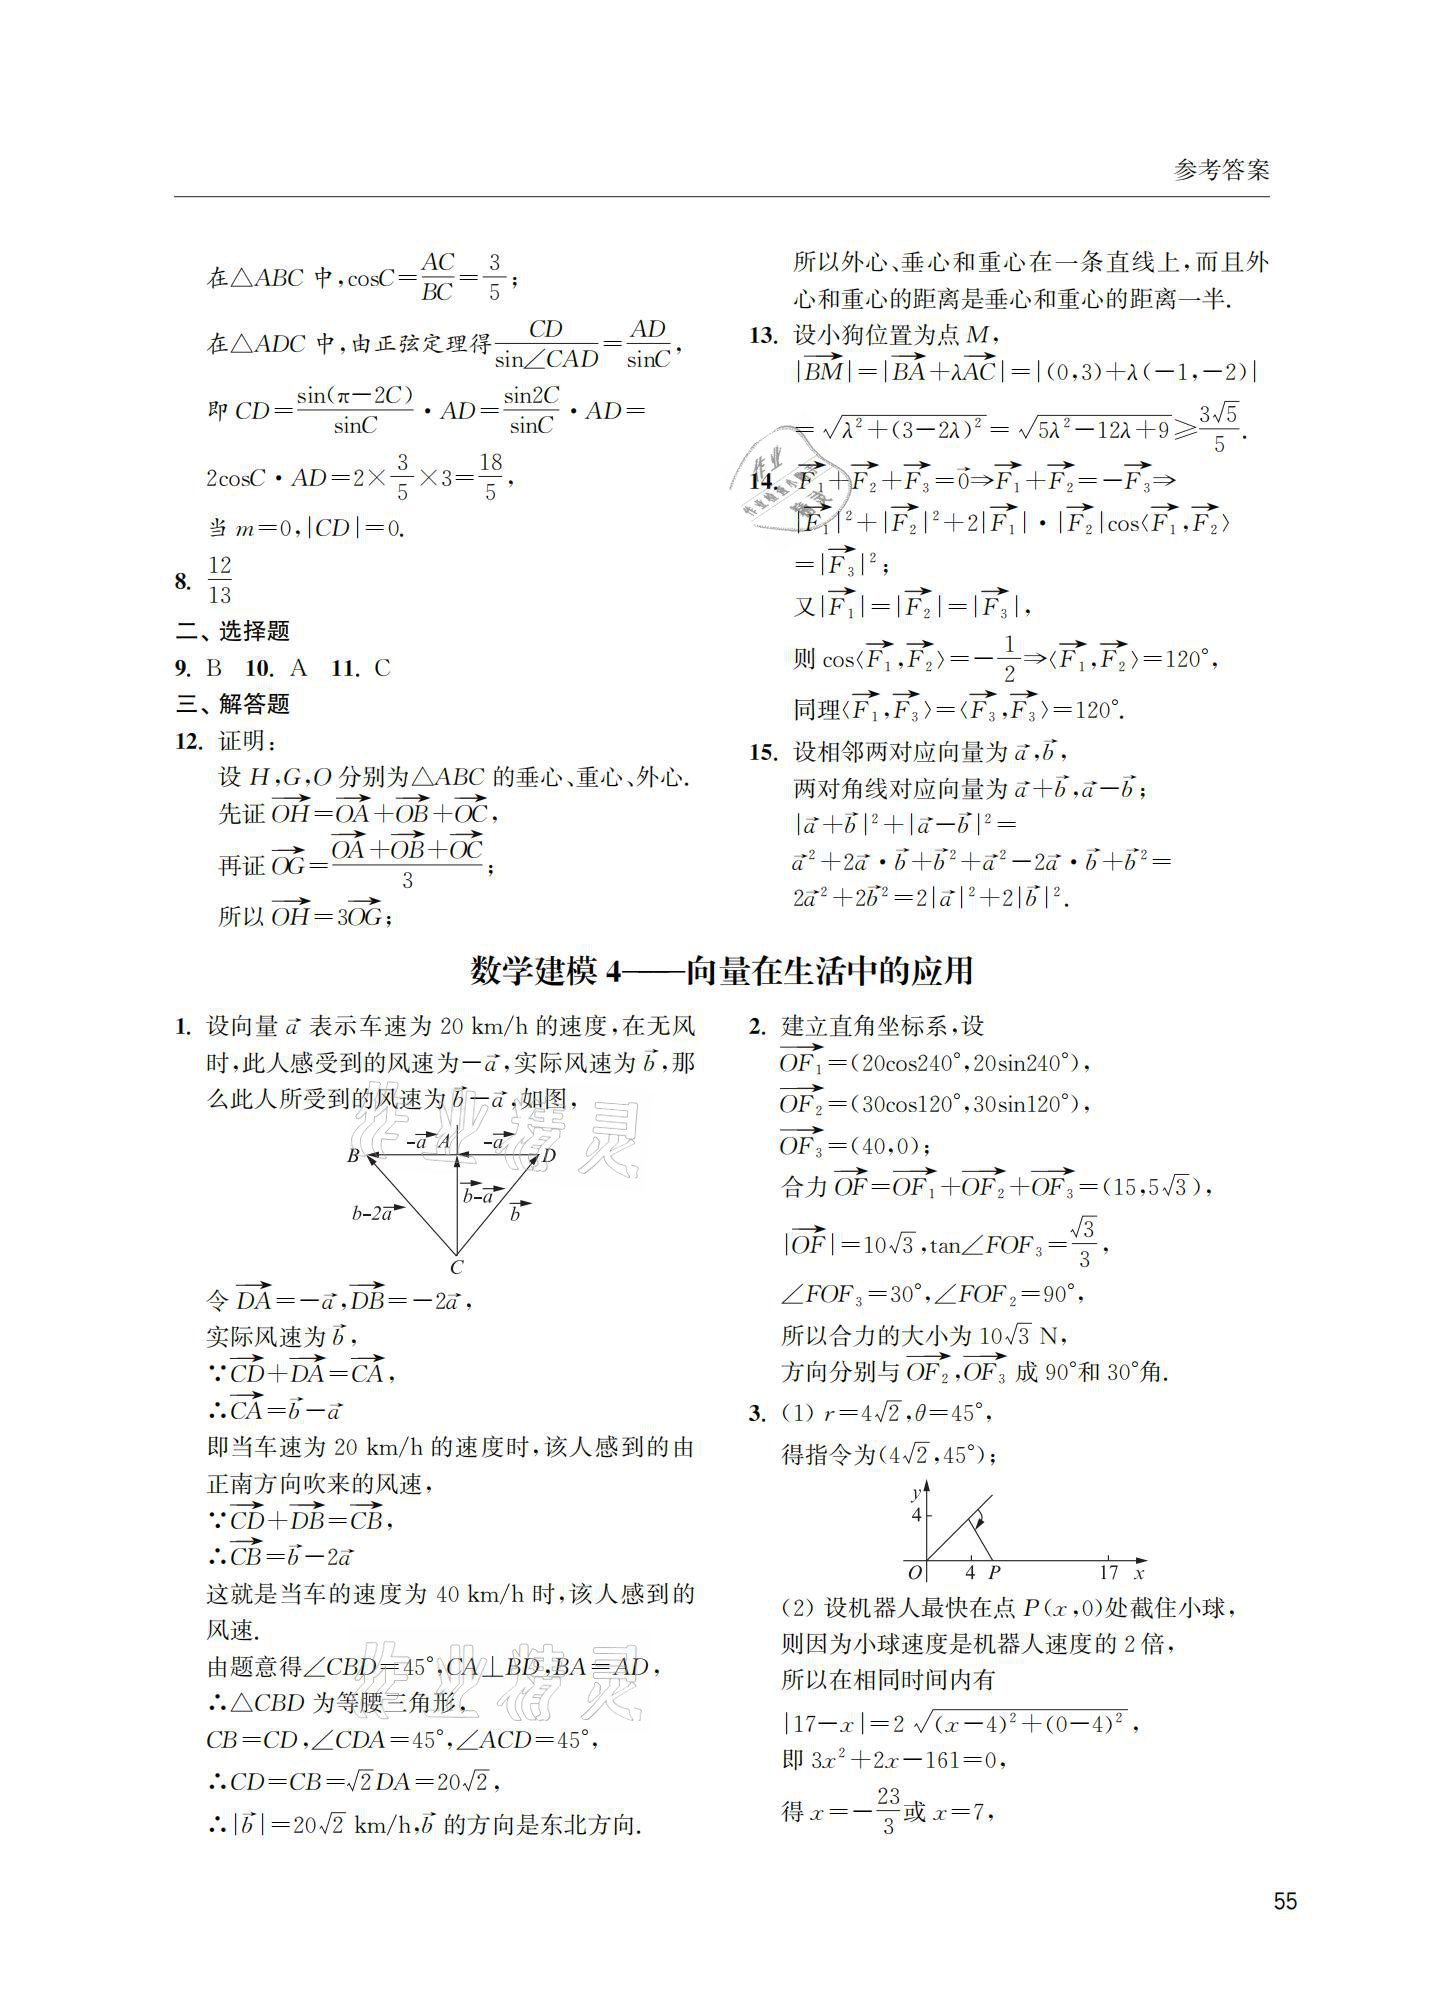 参考答案
在△ABC 中,cosC=AC/BC=3/5;
在△ADC 中,由正弦定理得CD/sin∠CAD=AD/sinC,
即 CD=sin(π-2C)/sinC·AD=sin2C/sinC·AD=
2cosC·AD=2×3/5×3=18/5,
当 m=0,|CD|=0.
8. 12/13
二、选择题
9. B 10. A 11. C
三、解答题
12. 证明:
设 H,G,O 分别为△ABC 的垂心、重心、外心.
先证 OH→=OA→+OB→+OC→,
再证 OG→=(OA→+OB→+OC→)/3;
所以 OH→=3OG→;
所以外心、垂心和重心在一条直线上,而且外
心和重心的距离是垂心和重心的距离一半.
13. 设小狗位置为点 M,
|BM→|=|BA→+λAC→|=|(0,3)+λ(-1,-2)|
=√(λ²+(3-2λ)²)=√(5λ²-12λ+9)≥3√5/5.
14. F₁→+F₂→+F₃→=0→⇒F₁→+F₂→=-F₃→⇒
|F₁→|²+|F₂→|²+2|F₁→|·|F₂→|cos〈F₁→,F₂→〉
=|F₃→|²;
又|F₁→|=|F₂→|=|F₃→|,
则 cos〈F₁→,F₂→〉=-1/2⇒〈F₁→,F₂→〉=120°,
同理〈F₁→,F₃→〉=〈F₃→,F₃→〉=120°.
15. 设相邻两对应向量为 a→,b→,
两对角线对应向量为 a→+b→,a→-b→;
|a→+b→|²+|a→-b→|²=
a→²+2a→·b→+b→²+a→²-2a→·b→+b→²=
2a→²+2b→²=2|a→|²+2|b→|².
数学建模 4——向量在生活中的应用
1. 设向量 a→ 表示车速为 20 km/h 的速度,在无风
时,此人感受到的风速为-a→,实际风速为 b→,那
么此人所受到的风速为 b→-a→,如图,
B -a→ A -a→ D
b-2a→ b→-a→ b→
C
令 DA→=-a→,DB→=-2a→,
实际风速为 b→,
∵CD→+DA→=CA→,
∴CA→=b→-a→
即当车速为 20 km/h 的速度时,该人感到的由
正南方向吹来的风速,
∵CD→+DB→=CB→,
∴CB→=b→-2a→
这就是当车的速度为 40 km/h 时,该人感到的
风速.
由题意得∠CBD=45°,CA⊥BD,BA=AD,
∴△CBD 为等腰三角形,
CB=CD,∠CDA=45°,∠ACD=45°,
∴CD=CB=√2DA=20√2,
∴|b→|=20√2 km/h,b→ 的方向是东北方向.
2. 建立直角坐标系,设
OF₁→=(20cos240°,20sin240°),
OF₂→=(30cos120°,30sin120°),
OF₃→=(40,0);
合力 OF→=OF₁→+OF₂→+OF₃→=(15,5√3),
|OF→|=10√3,tan∠FOF₃=√3/3,
∠FOF₃=30°,∠FOF₂=90°,
所以合力的大小为 10√3 N,
方向分别与 OF₂→,OF₃→ 成 90°和 30°角.
3. (1) r=4√2,θ=45°,
得指令为(4√2,45°);
y
4
O 4 P 17 x
(2) 设机器人最快在点 P(x,0)处截住小球,
则因为小球速度是机器人速度的 2 倍,
所以在相同时间内有
|17-x|=2√((x-4)²+(0-4)²),
即 3x²+2x-161=0,
得 x=-23/3或 x=7,
作业精灵
作业精灵
55